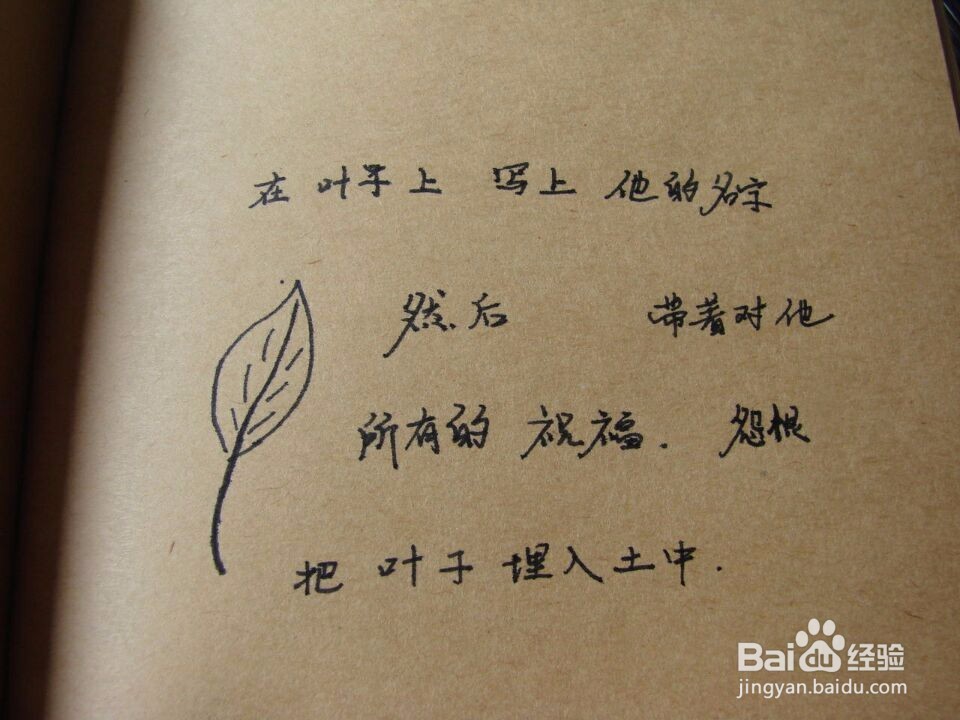 在 叶子上 写上 他的名字
然后 带着对他
所有的 祝福. 怨恨
把 叶子 埋入土中.
Bai du 经验
jingyan.baidu.com